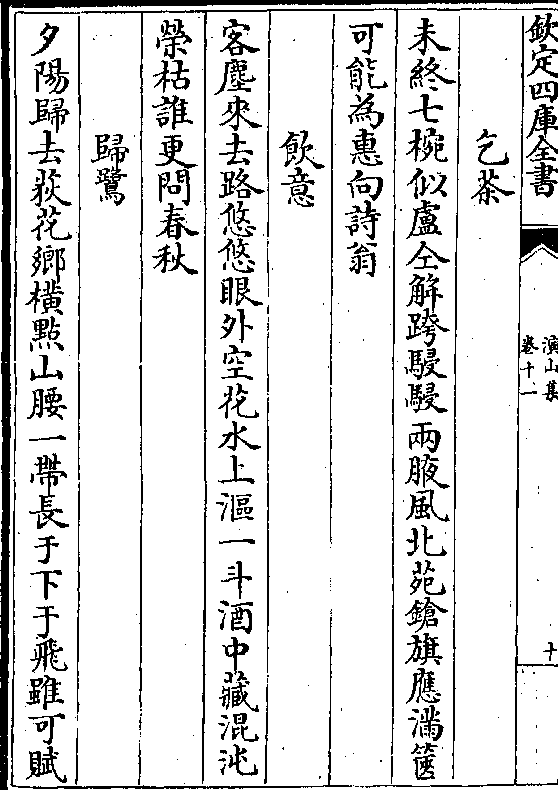 欽定四庫全書
演山集
卷十一
十
乞茶
未終七椀似盧仝解跨駸駸兩腋風北苑鎗旗應滿篋
可能為惠向詩翁
飲意
客塵來去路悠悠眼外空花水上漚一斗酒中藏混沌
榮枯誰更問春秋
歸鷺
夕陽歸去荻花鄉橫點山腰一帶長于下于飛雖可賦